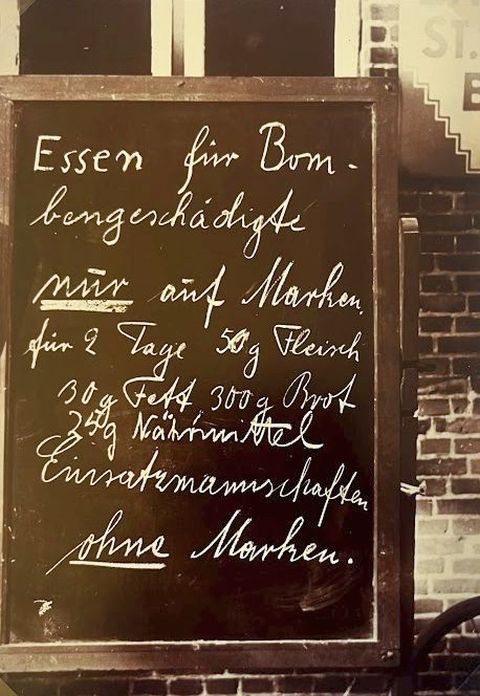 ST.
Essen für Bom-
bengeschädigte
nur auf Marken.
für 2 Tage 50g Fleisch
30g Fett, 300g Brot
25g Nährmittel
Einsatzmannschaften
ohne Marken.